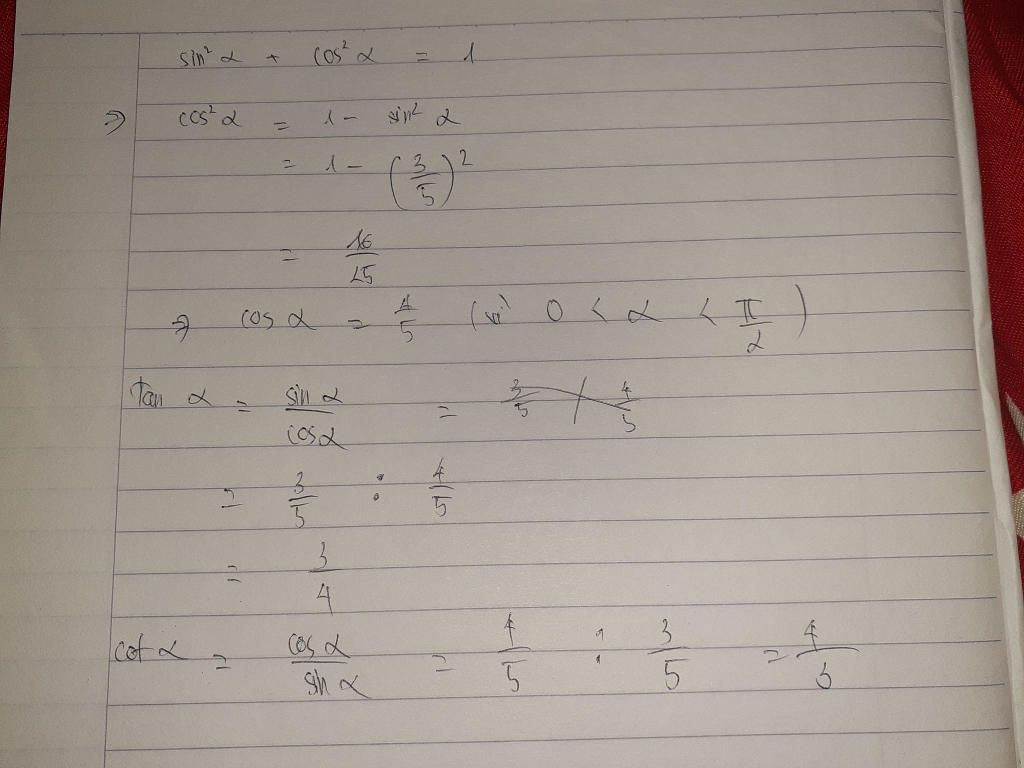 sin² α + cos² α = 1
⇒ cos² α = 1 - sin² α
= 1 - (3/5)²
= 16/25
⇒ cos α = 4/5 (vì 0 < α < π/2)
tan α = sin α / cos α = 3/5 / 4/5
= 3/5 : 4/5
= 3/4
cot α = cos α / sin α = 4/5 : 3/5 = 4/3